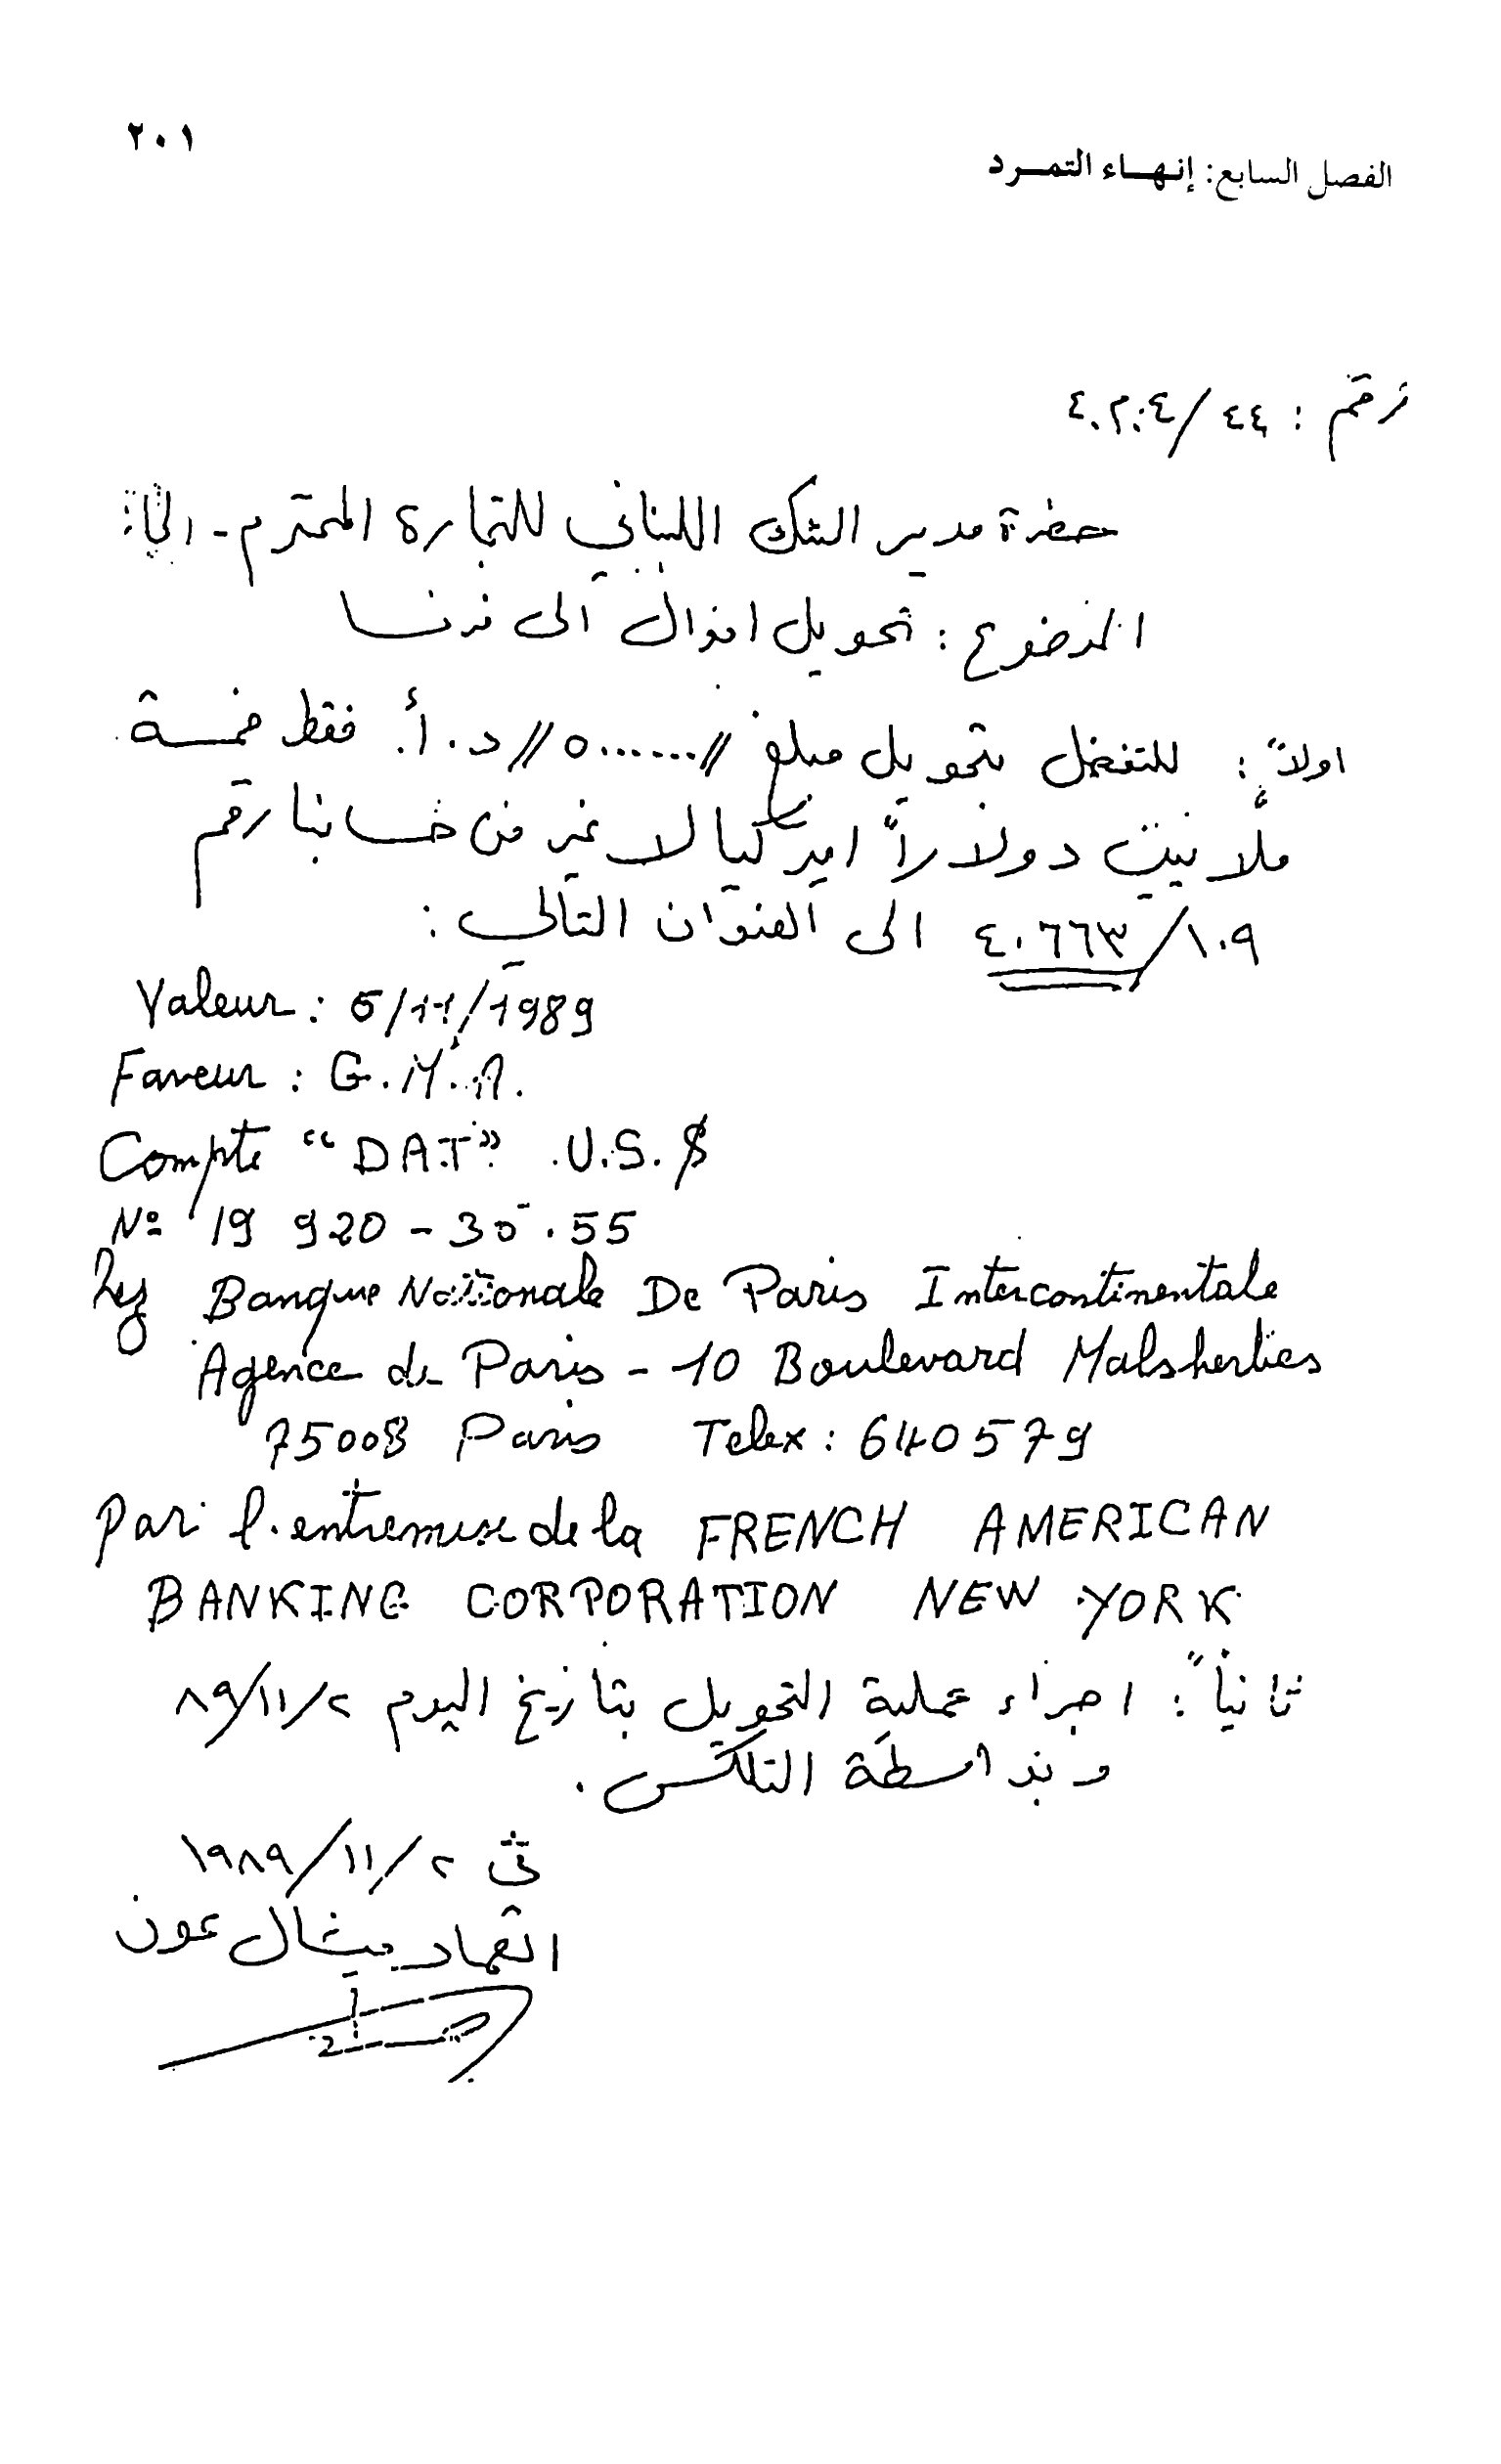 ٢٠١
الفصل السابع: إنهاء التمرد
رقم : ٤٤/٤٠٢٠٤
حضرة مدير البنك اللبناني للتجارة المحترم -
الموضوع : تحويل اموال الى فرنسا
اولاً : للتفضل بتحويل مبلغ //٥٠٠٠٠٠٠// د.أ. فقط خمسة
ملايين دولاراً اميركيا لا غير من حسابنا رقم
١٠٩/٤٠٦٦٣ الى العنوان التالي :
Valeur : 6/11/1989
Faveur : G.M.A.
Compte "DAT" U.S.$
Nº 19 920-30.55
Banque Nationale De Paris Intercontinentale
Agence de Paris - 10 Boulevard Malsherbes
75008 Paris Telex : 640579
Par l'entremise de la FRENCH AMERICAN
BANKING CORPORATION NEW YORK
ثانياً : اجراء عملية التحويل بتاريخ اليوم ٢/١١/٨٩
وبواسطة التلكس .
في ٢/١١/١٩٨٩
العماد ميشال عون